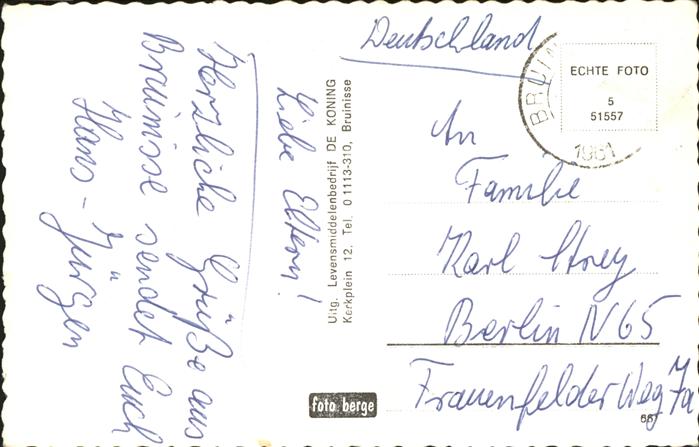 Liebe Eltern!
Herzliche Grüße aus
Bruinisse sendet Euch
Hans-Jürgen
Uitg. Levensmiddelenbedrijf DE KONING
Kerkplein 12, Tel. 01113-310, Bruinisse
Deutschland
BRUIN
1981
ECHTE FOTO
5
51557
An
Familie
Karl Strey
Berlin N65
Frauenfelder Weg 7a
foto berge